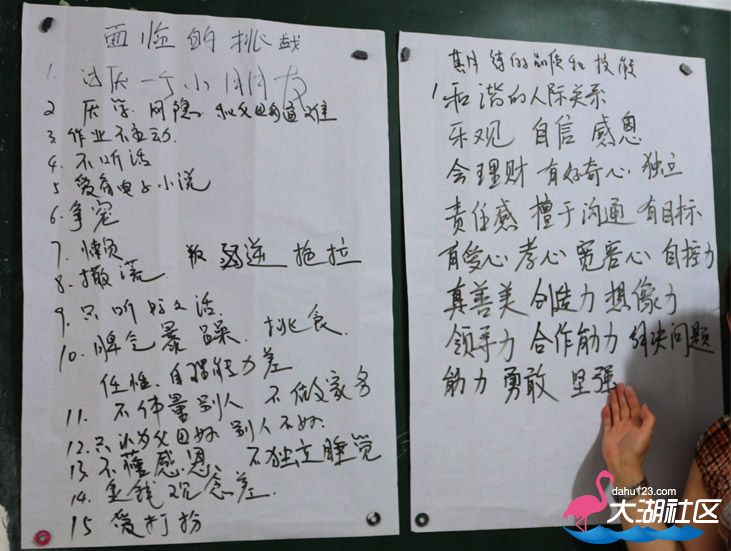 面临的挑战
1. 过厌一于小朋友
2 厌学 网隐 和父母沟通难
3 作业不主动.
4. 不听话
5 爱看电子小说
6. 争宠
7. 懒 叛逆 拖拉
8. 撒谎
9. 只听好文话.
10. 脾气暴躁. 挑食.
任性. 自理能力差
11. 不体量别人 不做家务
12. 只认为父母好 别人不好.
13 不懂感恩 不独立睡觉
14. 金钱观念差.
15 爱打扮
期待的品质和技能
1 和谐的人际关系
乐观 自信 感恩
会理财 有好奇心 独立
责任感 擅于沟通 有目标
有爱心 孝心 宽容心 自控力
真善美 创造力 想像力
领导力 合作能力 解决问题
能力 勇敢 坚强
dahu123.com
大湖社区